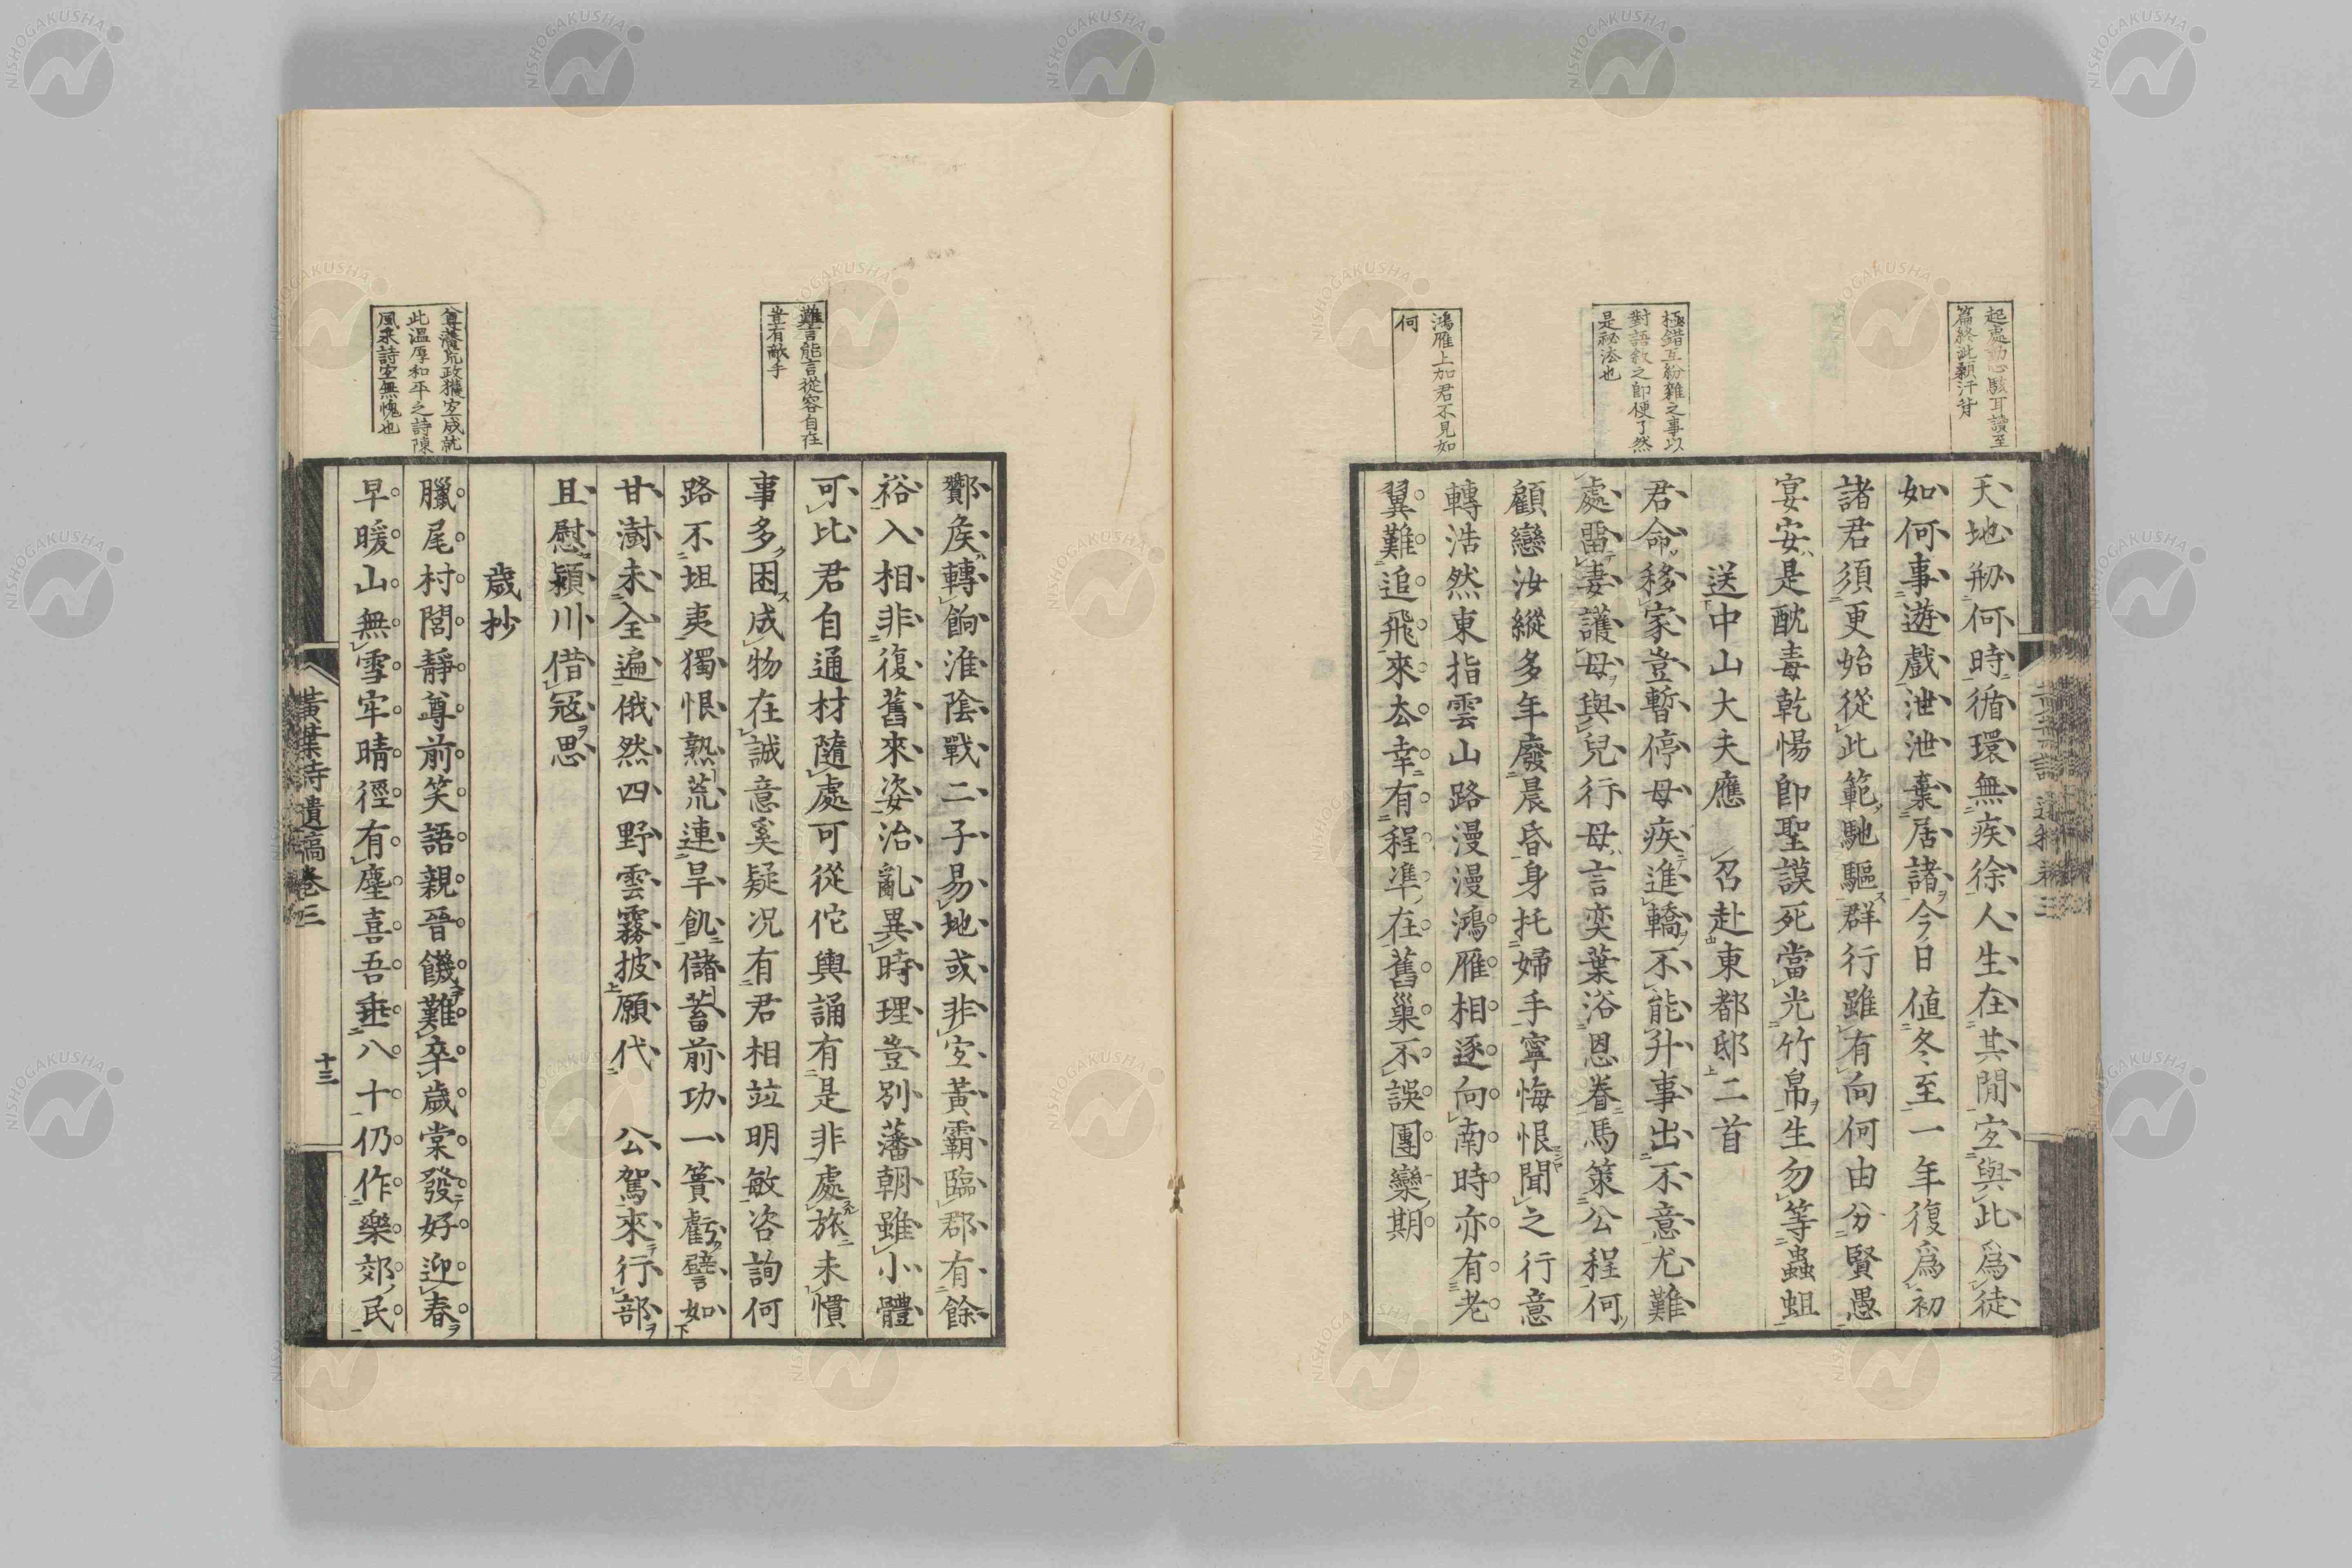 起處動心駭耳讀至
篇終泚顙汗背
極錯互紛雜之事以
對語敘之即便了然
是秘法也
鴻雁上加君不見如
何
天地刱何時循環無疾徐人生在其間宜與此爲徒
如何事遊戲泄泄棄居諸今日値冬至一年復爲初
諸君須更始從此範馳驅群行雖有向何由分賢愚
宴安是酖毒乾惕即聖謨死當光竹帛生勿等蟲蛆
送中山大夫應　召赴東都邸二首
君命移家豈暫停母疾進轎不能升事出不意尤難
處畱妻護母與兒行母言奕葉浴恩眷馬策公程何
顧戀汝縱多年廢晨昏身托婦手寧悔恨聞之行意
轉浩然東指雲山路漫漫鴻雁相逐向南時亦有老
翼難追飛來厺幸有程準在舊巢不誤團欒期
難言能言從容自在
豈有敵手
尊藩荒政獲宜成就
此溫厚和平之詩陳
風采詩宜無愧也
酇矦轉餉淮陰戰二子易地或非宜黃霸臨郡有餘
裕入相非復舊來姿治亂異時理豈別藩朝雖小體
可比君自通材隨處可從佗輿誦有是非處旅未慣
事多困成物在誠意奚疑况有君相竝明敏咨詢何
路不坦夷獨恨熟荒連旱飢儲蓄前功一簣虧譬如
甘澍未全遍俄然四野雲霧披願代　公駕來行部
且慰潁川借寇思
歲抄
臘尾村閭靜尊前笑語親晉饑難卒歲棠發好迎春
早暖山無雪牢晴徑有塵喜吾垂八十仍作樂郊民
黃葉詩遺稿卷三
十三